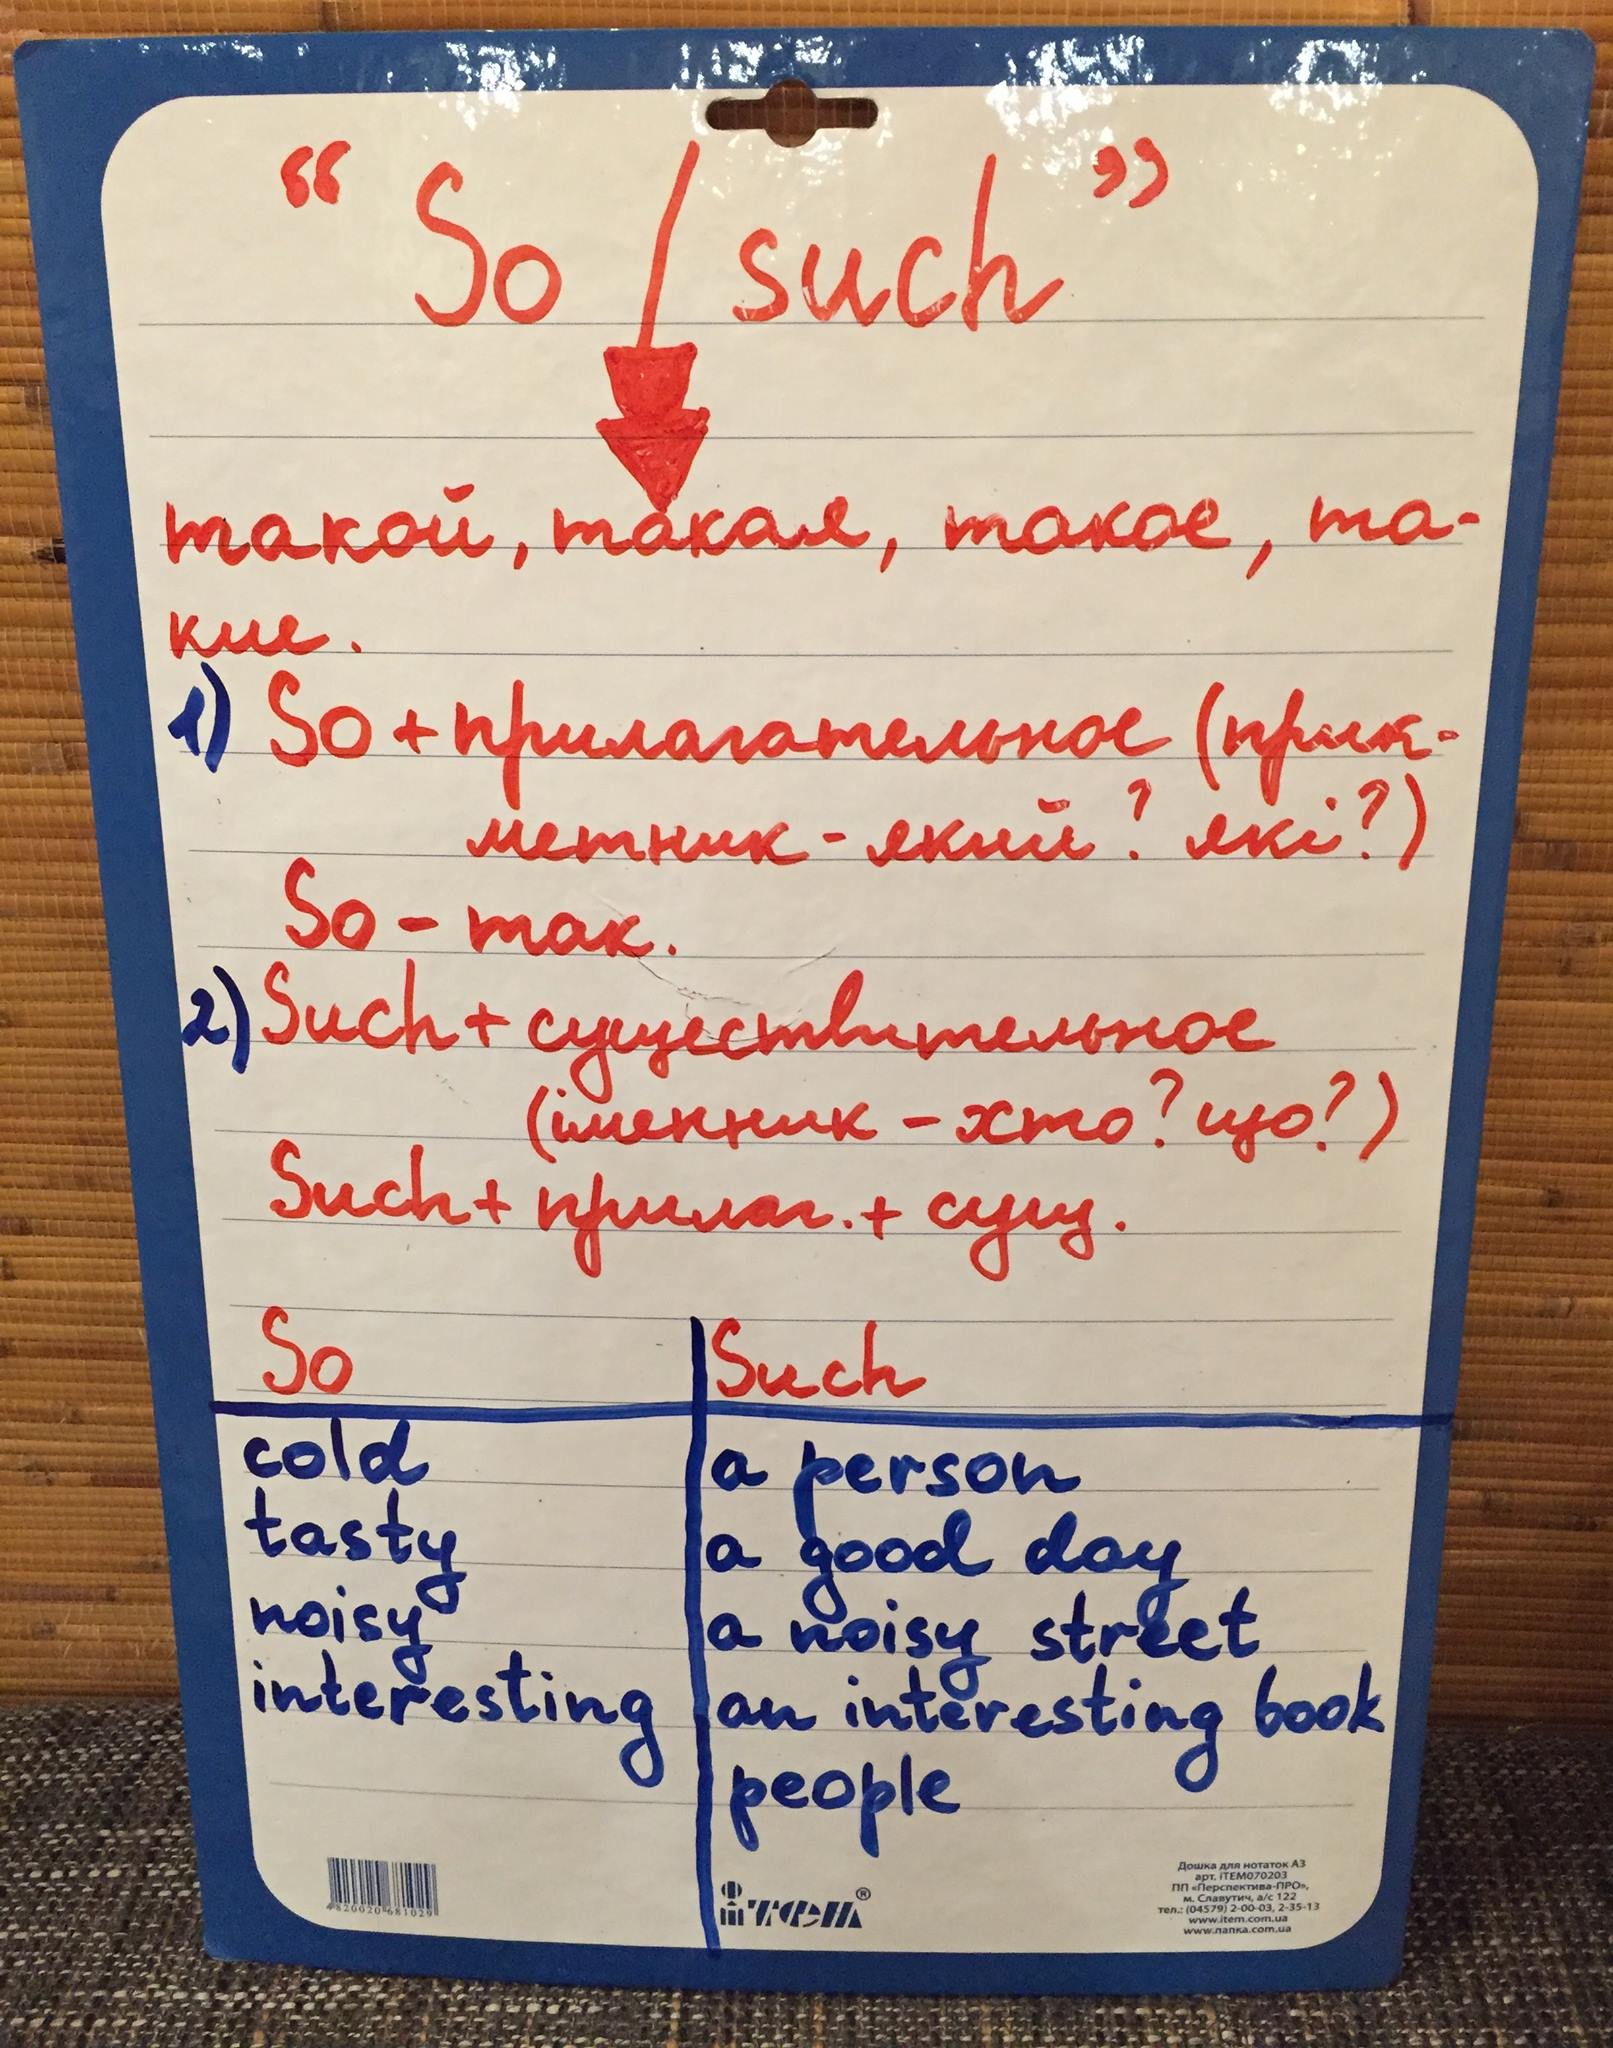 “So / such”
такой, такая, такое, та-
кие.
1) So + прилагательное (прик-
метник - який? які?)
So - так.
2) Such + существительное
(іменник - хто? що?)
Such + прилаг. + сущ.
So Such
cold a person
tasty a good day
noisy a noisy street
interesting an interesting book
people
4820020 681029
ітем®
Дошка для нотаток А3
арт. iTEM070203
ПП «Перспектива-ПРО»,
м. Славутич, а/с 122
тел.: (04579) 2-00-03, 2-35-13
www.item.com.ua
www.папка.com.ua